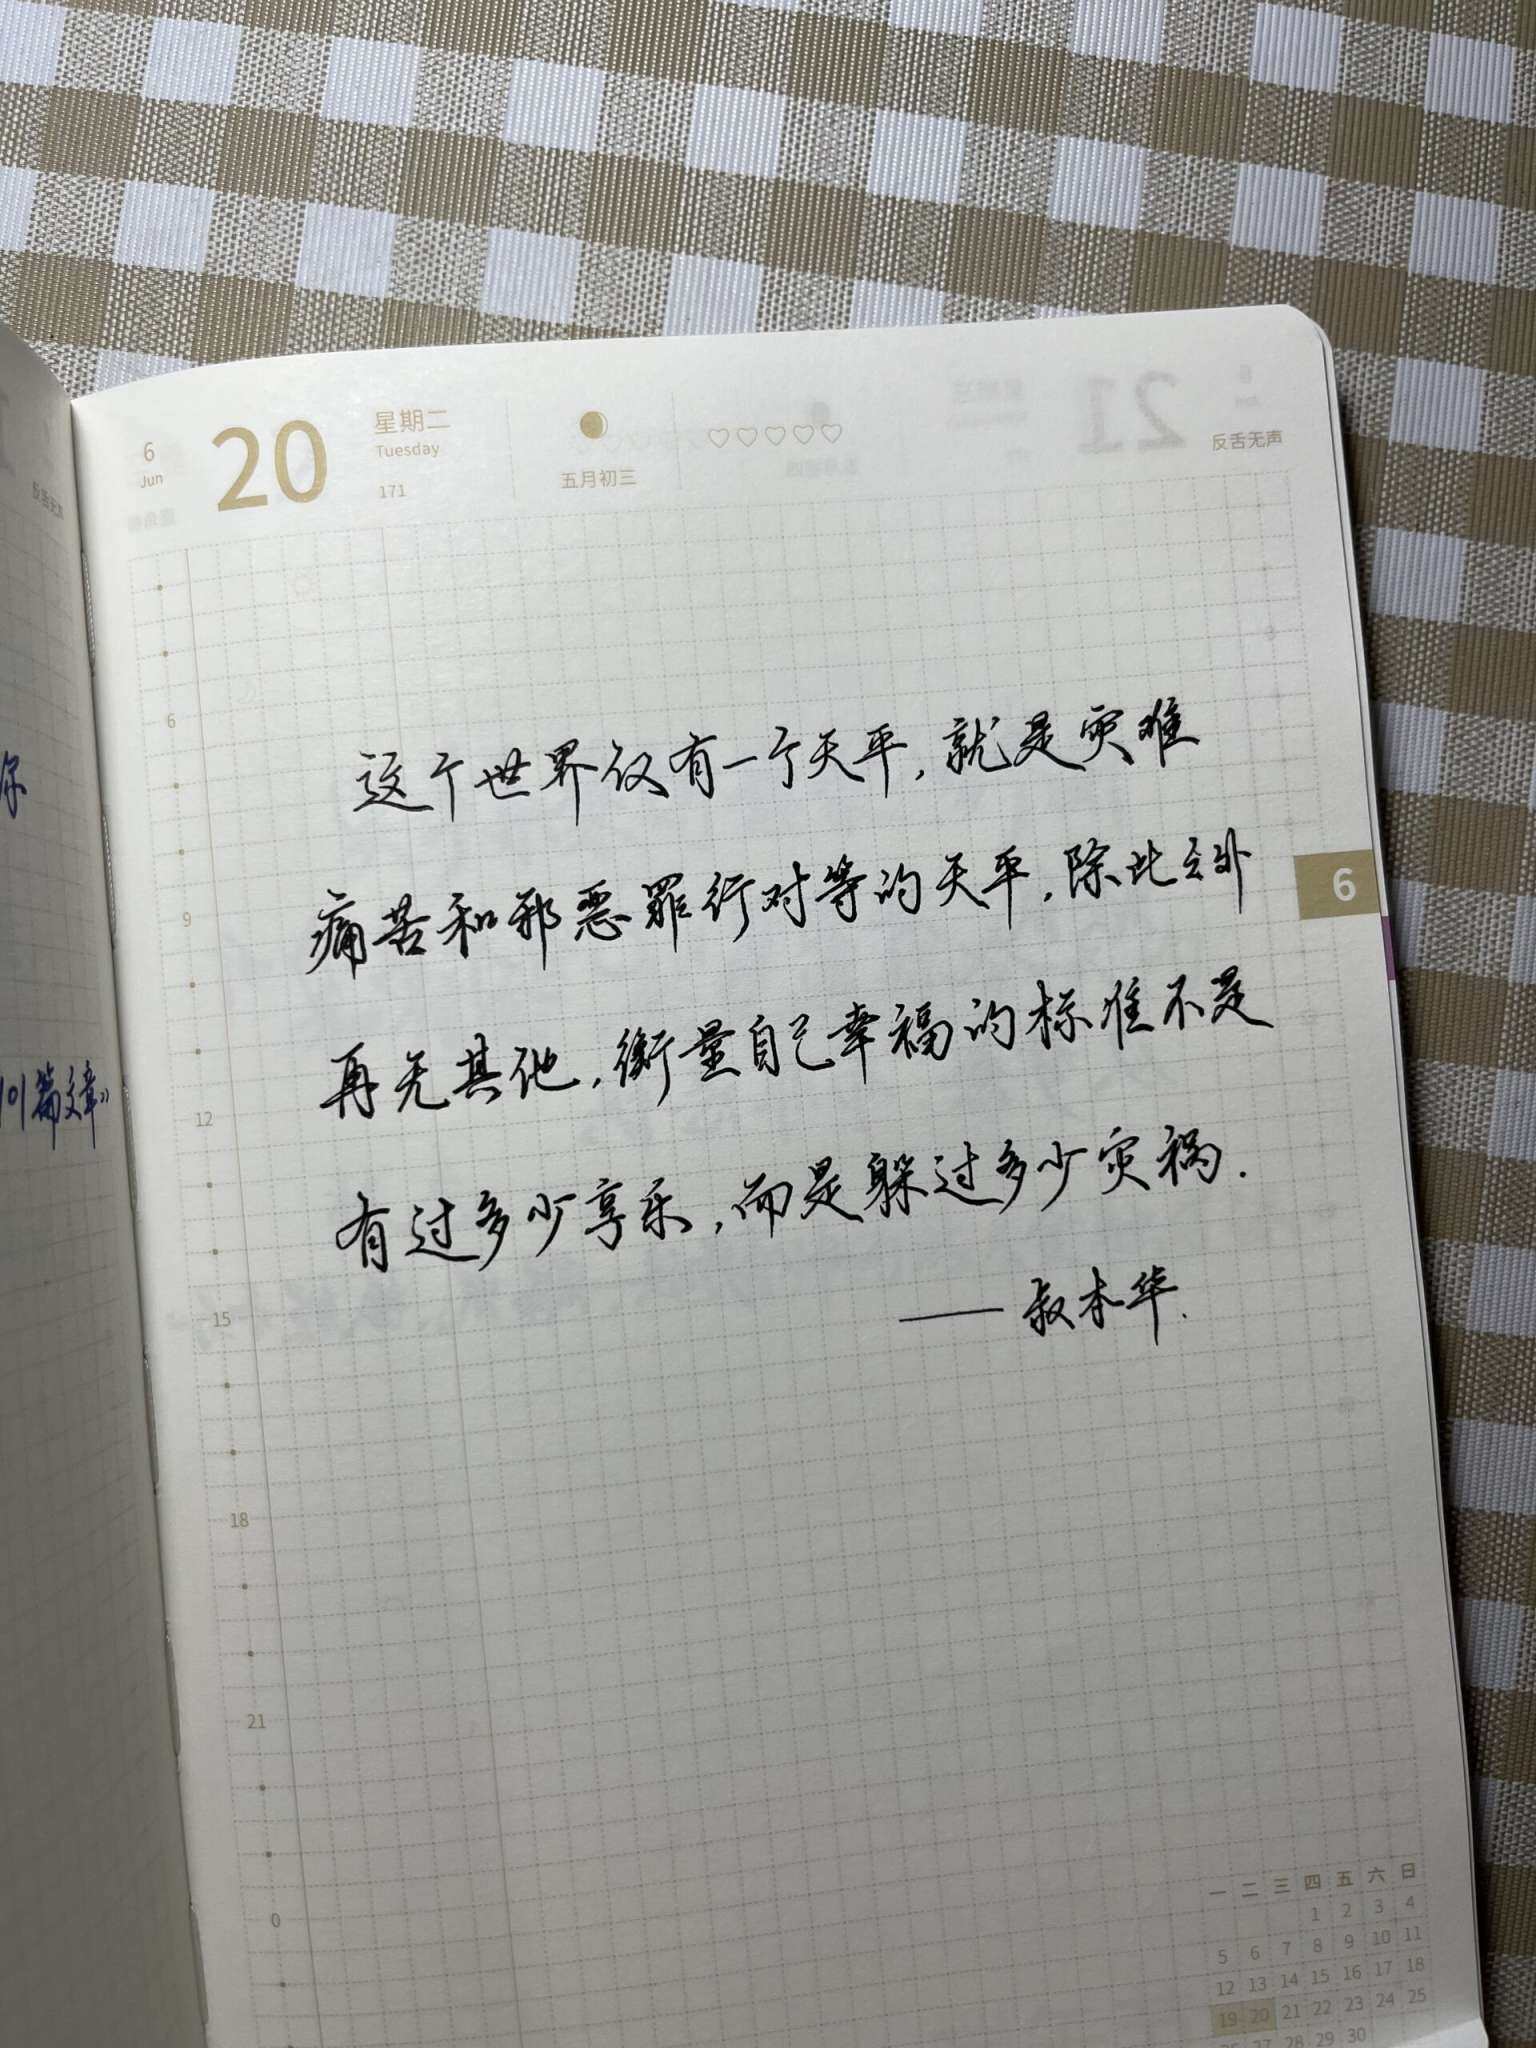 6
Jun
20
星期二
Tuesday
171
五月初三
反舌无声
这个世界仅有一个天平,就是灾难
痛苦和邪恶罪行对等的天平,除此之外
再无其他,衡量自己幸福的标准不是
有过多少享乐,而是躲过多少灾祸.
—— 叔本华.
6
9
12
15
18
21
0
6
你
101篇文章》
一 二 三 四 五 六 日
1 2 3 4
5 6 7 8 9 10 11
12 13 14 15 16 17 18
19 20 21 22 23 24 25
26 27 28 29 30